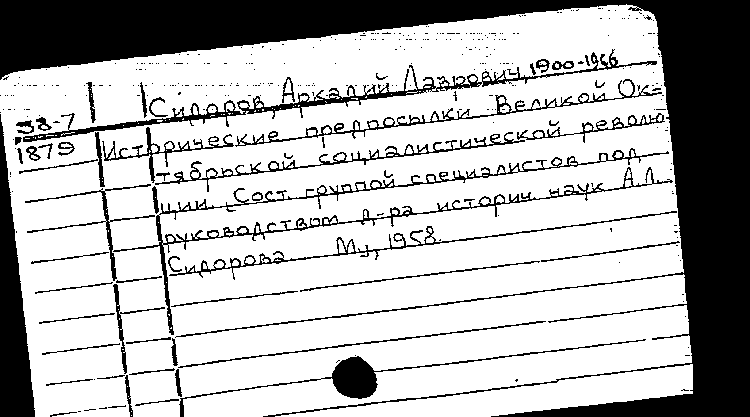 Сидоров, Аркадий Лаврович, 1900-1966
58-7
1879 Исторические предпосылки Великой Ок-
тябрьской социалистической револю-
ции. Сост. группой специалистов под
руководством д-ра историч. наук А.Л.
Сидорова М., 1958